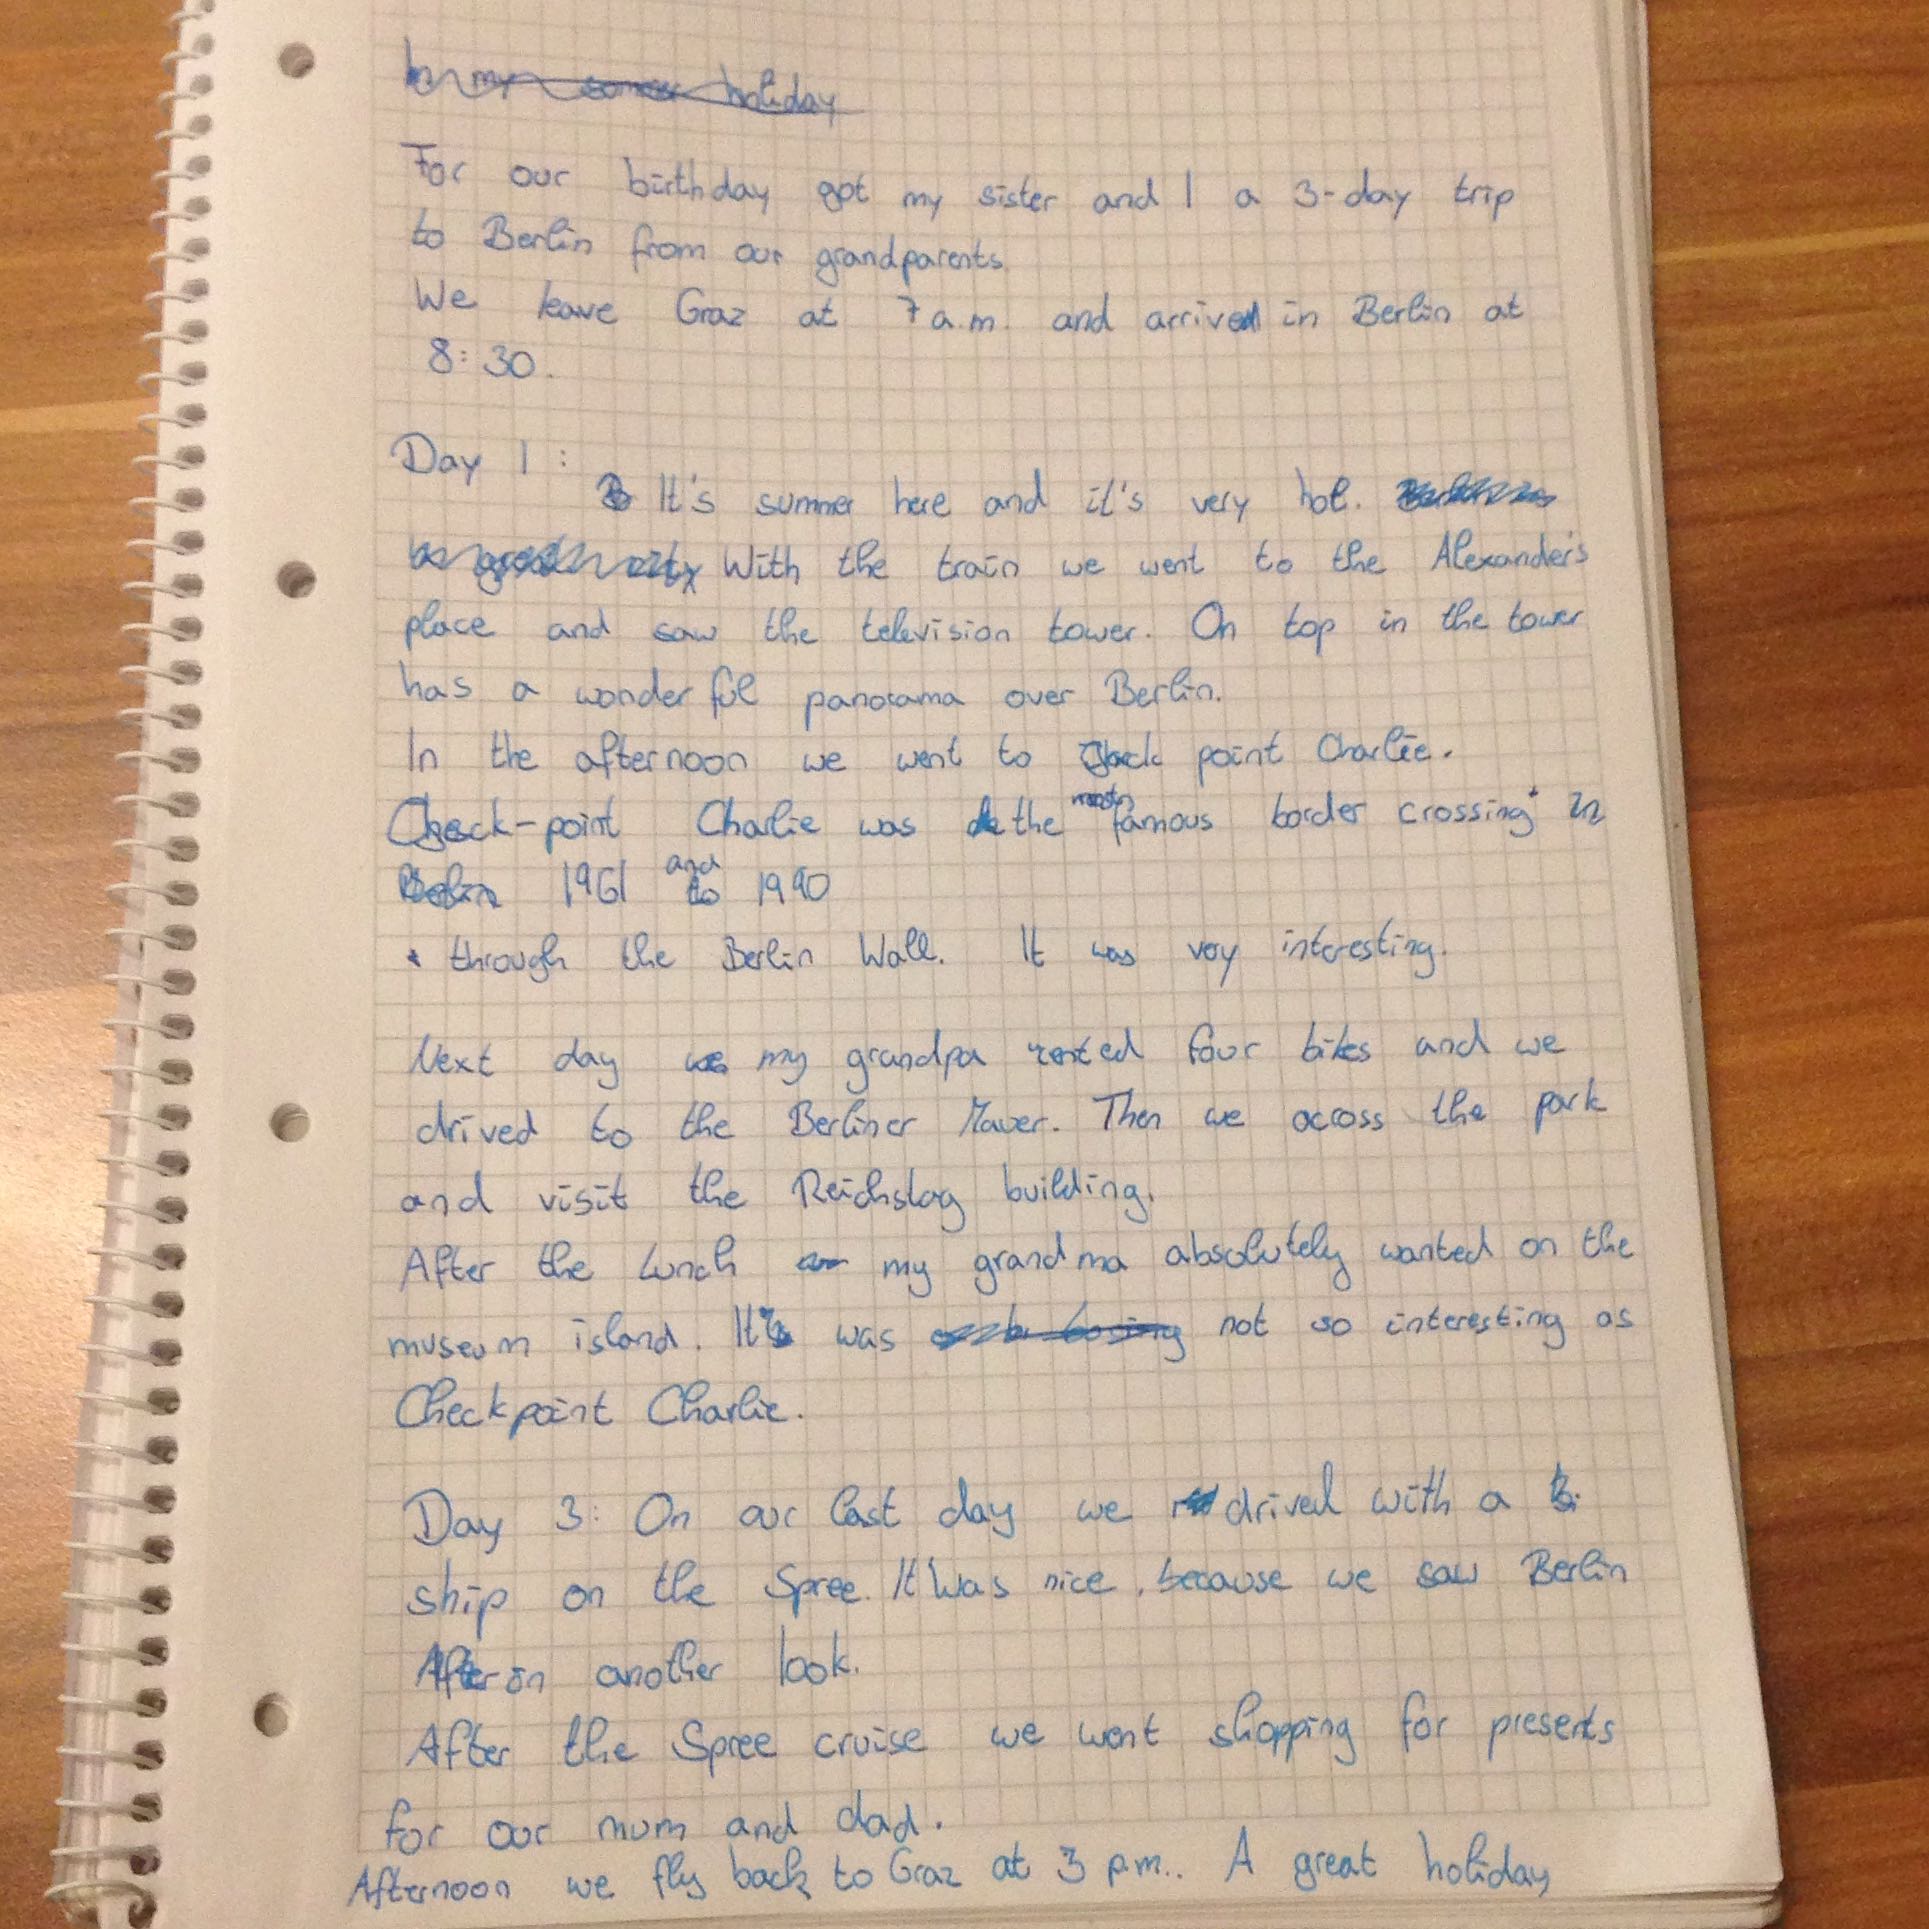 In my summer holiday
For our birthday got my sister and I a 3-day trip
to Berlin from our grandparents.
We leave Graz at 7 a.m. and arrived in Berlin at
8:30.
Day 1:
It's summer here and it's very hot.
With the train we went to the Alexander's
place and saw the television tower. On top in the tower
has a wonderful panorama over Berlin.
In the afternoon we went to Check point Charlie.
Check-point Charlie was the most famous border crossing* in
Berlin 1961 and to 1990
* through the Berlin Wall. It was very interesting.
Next day my grandpa rented four bikes and we
drived to the Berliner Mauer. Then we across the park
and visit the Reichstag building.
After the lunch my grandma absolutely wanted on the
museum island. It was not so interesting as
Checkpoint Charlie.
Day 3: On our last day we drived with a
ship on the Spree. It was nice, because we saw Berlin
in another look.
After the Spree cruise we went shopping for presents
for our mum and dad.
Afternoon we fly back to Graz at 3 p.m.. A great holiday